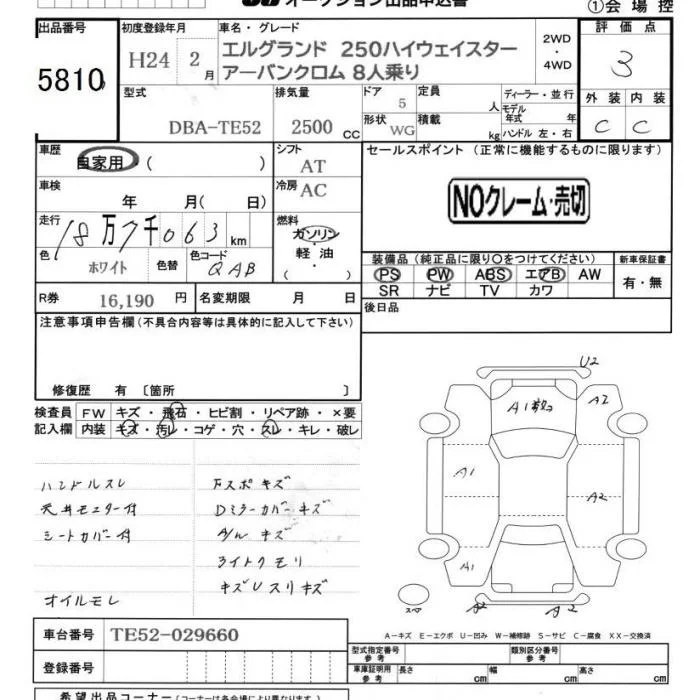 オークション出品申込書
①会場控
出品番号 初度登録年月 車名・グレード 2WD・4WD 評価点
5810 H24 2月 エルグランド 250ハイウェイスター
アーバンクロム 8人乗り
3
型式 排気量 ドア 定員 ディーラー・並行 外装 内装
DBA-TE52 2500cc 5 人 モデル年式 年
形状 WG 積載 kg ハンドル 左・右 C C
車歴 自家用 ( ) シフト AT
セールスポイント (正常に機能するものに限ります)
車検 年 月( 日) 冷房 AC
NOクレーム・売切
走行 18万7千063km
燃料 ガソリン・軽油・( )
色 ホワイト 色替 色コード QAB
装備品(純正品に限り〇をつけてください) 新車保証書
PS PW ABS エアB AW 有・無
SR ナビ TV カワ
R券 16,190円 名変期限 月 日
後日品
注意事項申告欄(不具合内容等は具体的に記入して下さい)
修復歴 有 〔箇所 〕
検査員記入欄 FW キズ・飛石・ヒビ割・リペア跡・×要
内装 キズ・汚レ・コゲ・穴・スレ・キレ・破レ
ハンドルスレ
天井モニター付
シートカバー付
オイルモレ
Fスポキズ
Dミラーカバーキズ
A/Wキズ
ライトクモリ
キズUスリキズ
U2
A1
A2
A1
A2
A1
A2
A2
スペア
A-キズ E-エクボ U-凹み W-補修跡 S-サビ C-腐食 XX-交換済
車台番号 TE52-029660
登録番号
型式指定番号 参考 類別区分番号 参考
車庫証明用 参考 長さ cm 幅 cm 高さ cm
希望出品コーナー(コーナーは各会場により異なります。)